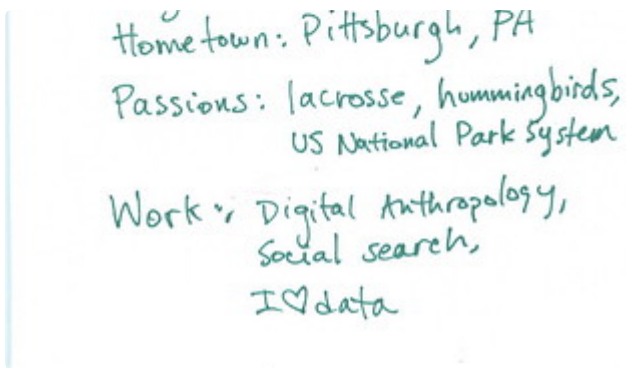 Hometown: Pittsburgh, PA
Passions: lacrosse, hummingbirds,
US National Park System
Work: Digital Anthropology,
Social search,
I♡data